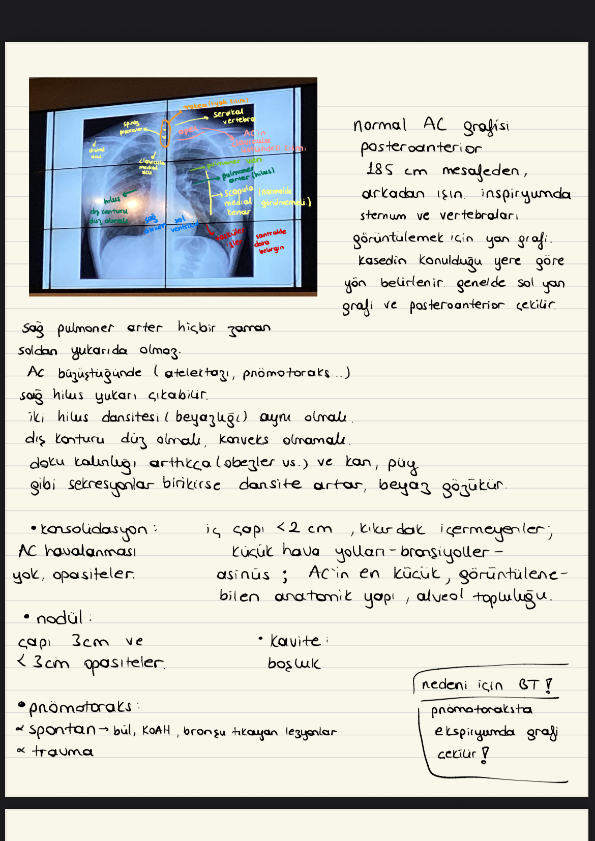 servikal
vertebra
spinöz
clavicula
medial
ucu
pulmoner
arter (hilus)
scapula
medial
kenar
(normalde
görünmemeli)
hilus
dış konturu
düz olmalı
sağ
sol
ventrikül
santralde
daha
belirgin
normal AC grafisi
posteroanterior
185 cm mesafeden,
arkadan ışın. inspiryumda
sternum ve vertebraları
görüntülemek için yan grafi.
kasedin konulduğu yere göre
yön belirlenir genelde sol yan
grafi ve posteroanterior çekilir.
sağ pulmoner arter hiçbir zaman
soldan yukarıda olmaz.
AC büzüştüğünde (atelektazi, pnömotoraks...)
sağ hilus yukarı çıkabilir.
iki hilus dansitesi (beyazlığı) aynı olmalı.
dış konturu düz olmalı, konveks olmamalı.
doku kalınlığı arttıkça (obezler vs.) ve kan, püy
gibi sekresyonlar birikirse dansite artar, beyaz gözükür.
• konsolidasyon:
AC havalanması
yok, opasiteler.
iç çapı <2 cm, kıkırdak içermeyenler;
küçük hava yolları-bronşiyoller-
asinüs; AC'in en küçük, görüntülene-
bilen anatomik yapı, alveol topluluğu.
• nodül:
çapı 3cm ve
<3cm opasiteler.
• kavite:
boşluk
• pnömotoraks:
∝ spontan → bül, KOAH, bronşu tıkayan lezyonlar
∝ travma
nedeni için BT!
pnömotoraksta
ekspiryumda grafi
çekilir!